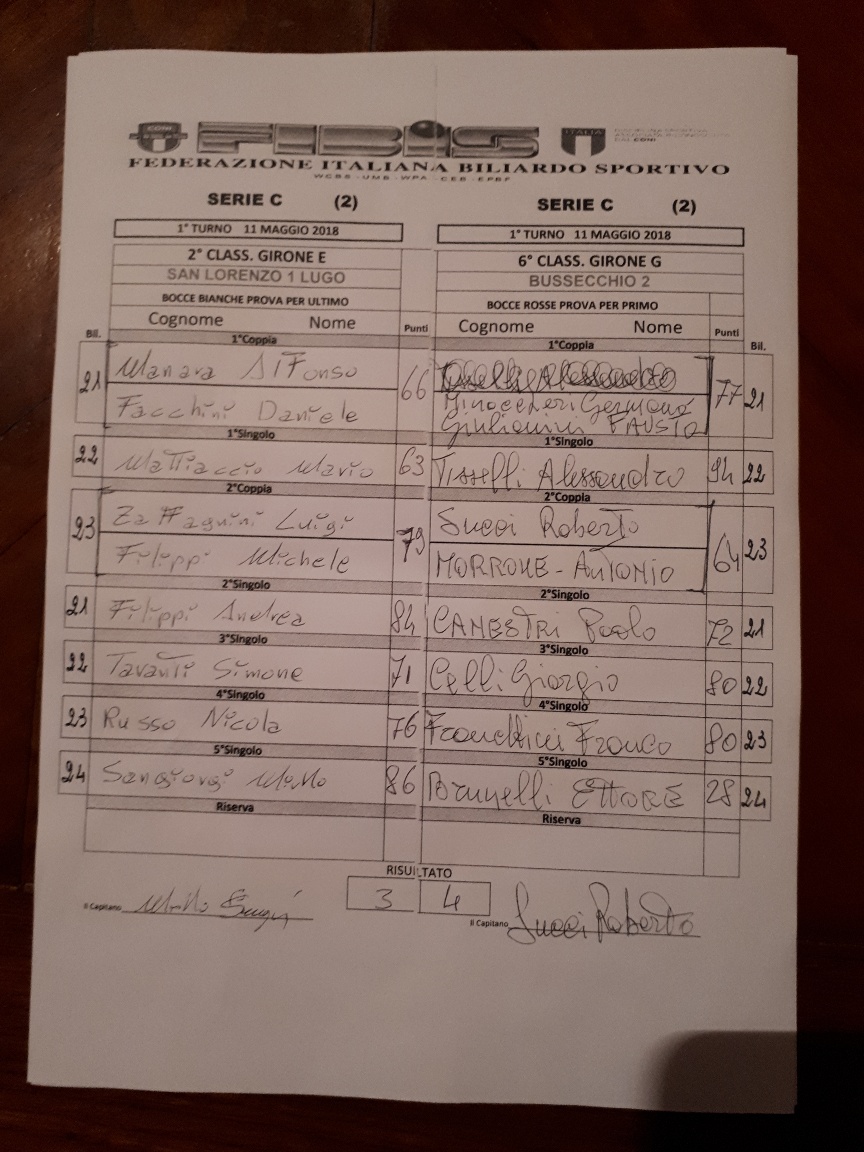 FIBiS
CONI
ITALIA
FEDERAZIONE ITALIANA BILIARDO SPORTIVO
WCBS - UMB - WPA - CEB - EPBF
SERIE C (2) SERIE C (2)
1° TURNO 11 MAGGIO 2018 1° TURNO 11 MAGGIO 2018
2° CLASS. GIRONE E 6° CLASS. GIRONE G
SAN LORENZO 1 LUGO BUSSECCHIO 2
BOCCE BIANCHE PROVA PER ULTIMO BOCCE ROSSE PROVA PER PRIMO
Cognome Nome Punti Cognome Nome Punti
Bil. 1°Coppia 1°Coppia Bil.
21 Manara Alfonso 66 77 21
Facchini Daniele Germano
Giulianini FAUSTO
1°Singolo 1°Singolo
22 Mattiaccio Mario 63 Tisselli Alessandro 94 22
2°Coppia 2°Coppia
23 Zaffagnini Luigi 79 Succi Roberto 64 23
Filippi Michele MORRONE - ANTONIO
2°Singolo 2°Singolo
21 Filippi Andrea 84 CANESTRI Paolo 72 21
3°Singolo 3°Singolo
22 Tavanti Simone 71 Celli Giorgio 80 22
4°Singolo 4°Singolo
23 Russo Nicola 76 Franco 80 23
5°Singolo 5°Singolo
24 Sangiorgi Mirko 86 Brunelli ETTORE 28 24
Riserva Riserva
RISULTATO
3 4
Il Capitano
Il Capitano Succi Roberto